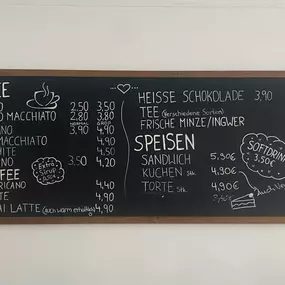 EE
O 2,50 3,50
O MACCHIATO 2,80 3,80
NORMAL GROSS
ANO 3,90 4,90
MACCHIATO 4,90
HITE 4,50
NO 3,50 4,20
Extra Sirup 0,50€
FFEE
RICANO 4,40
TE 4,90
AI LATTE (auch warm erhältlich) 4,90
HEISSE SCHOKOLADE 3,90
TEE (Verschiedene Sorten)
FRISCHE MINZE/INGWER
SPEISEN
SANDWICH 5,90€
KUCHEN Stk. 4,90€
TORTE Stk. 4,90€
SOFTDRIN
3,50€
Auch Ve